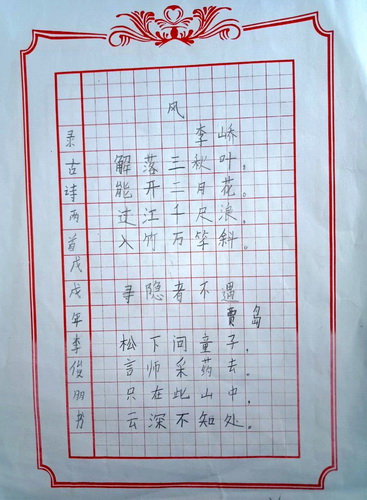 风
李峤
解落三秋叶，
能开二月花。
过江千尺浪，
入竹万竿斜。
寻隐者不遇
贾岛
松下问童子，
言师采药去。
只在此山中，
云深不知处。
录古诗两首戊戌年李俊丽书